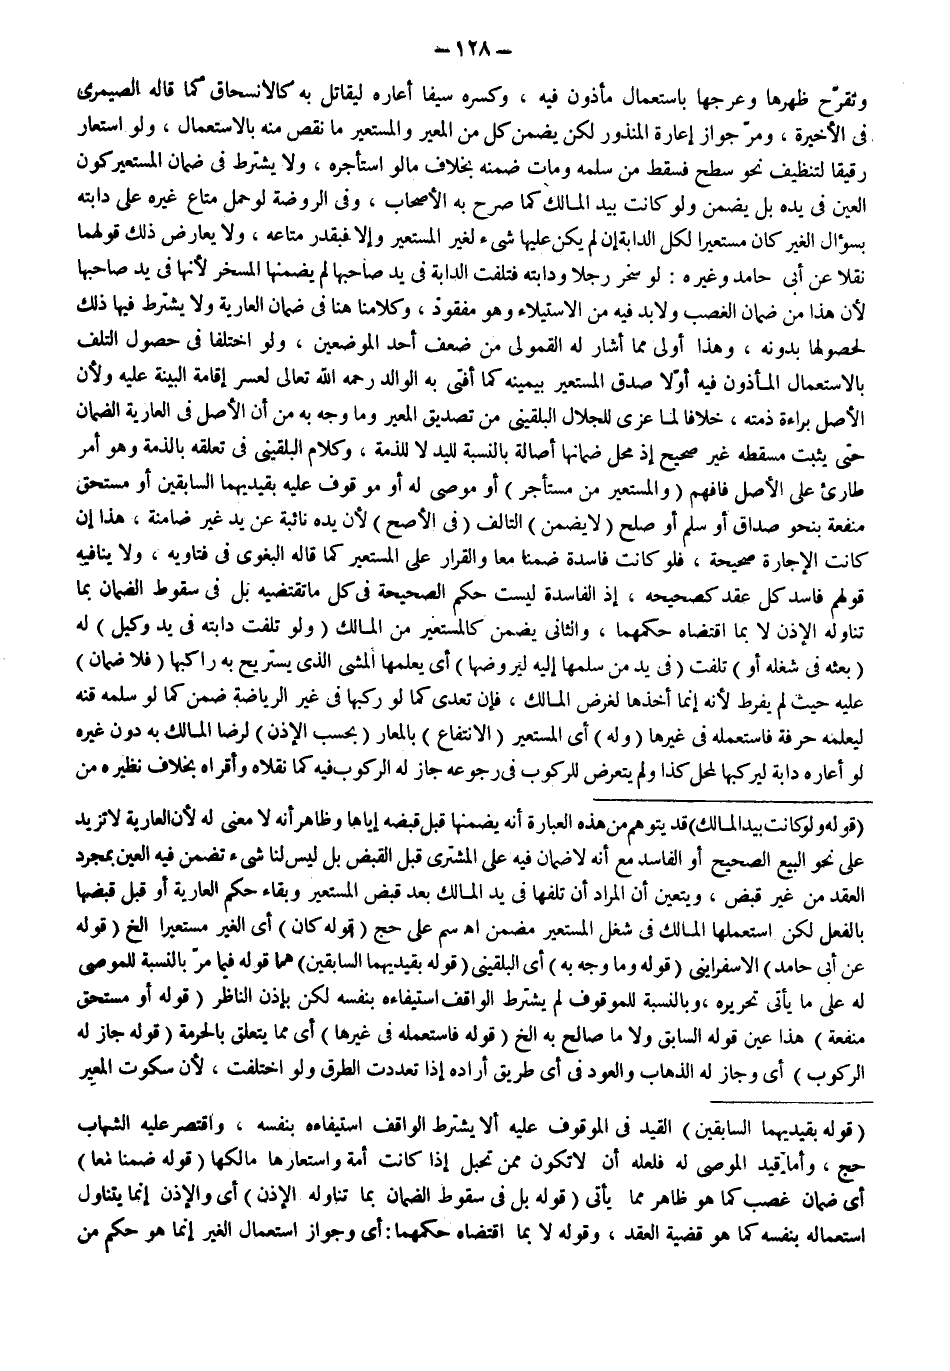 – ١٢٨ –
وتقرّح ظهرها وعرجها باستعمال مأذون فيه ، وكسره سيفا أعاره ليقاتل به كالانسحاق كما قاله الصيمرى
فى الأخيرة ، ومرّ جواز إعارة المنذور لكن يضمن كل من المعير والمستعير ما نقص منه بالاستعمال ، ولو استعار
رقيقا لتنظيف نحو سطح فسقط من سلمه ومات ضمنه بخلاف مالو استأجره ، ولا يشترط فى ضمان المستعير كون
العين فى يده بل يضمن ولو كانت بيد المالك كما صرح به الأصحاب ، وفى الروضة لو حمل متاع غيره على دابته
بسؤال الغير كان مستعيرا لكل الدابة إن لم يكن عليها شىء لغير المستعير وإلا فبقدر متاعه ، ولا يعارض ذلك قولهما
نقلا عن أبى حامد وغيره : لو سخر رجلا ودابته فتلفت الدابة فى يد صاحبها لم يضمنها المسخر لأنها فى يد صاحبها
لأن هذا من ضمان الغصب ولابد فيه من الاستيلاء وهو مفقود ، وكلامنا هنا فى ضمان العارية ولا يشترط فيها ذلك
لحصولها بدونه ، وهذا أولى مما أشار له القمولى من ضعف أحد الموضعين ، ولو اختلفا فى حصول التلف
بالاستعمال المأذون فيه أولا صدق المستعير بيمينه كما أفتى به الوالد رحمه الله تعالى لعسر إقامة البينة عليه ولأن
الأصل براءة ذمته ، خلافا لما عزى للجلال البلقينى من تصديق المعير وما وجه به من أن الأصل فى العارية الضمان
حتى يثبت مسقطه غير صحيح إذ محل ضمانها أصالة بالنسبة لليد لا للذمة ، وكلام البلقينى فى تعلقه بالذمة وهو أمر
طارئ على الأصل فافهم ( والمستعير من مستأجر ) أو موصى له أو موقوف عليه بقيديهما السابقين أو مستحق
منفعة بنحو صداق أو سلم أو صلح ( لايضمن ) التالف ( فى الأصح ) لأن يده نائبة عن يد غير ضامنة ، هذا إن
كانت الإجارة صحيحة ، فلو كانت فاسدة ضمنا معا والقرار على المستعير كما قاله البغوى فى فتاويه ، ولا ينافيه
قولهم فاسد كل عقد كصحيحه ، إذ الفاسدة ليست حكم الصحيحة فى كل ماتقتضيه بل فى سقوط الضمان بما
تناوله الإذن لا بما اقتضاه حكمهما ، والثانى يضمن كالمستعير من المالك ( ولو تلفت دابته فى يد وكيل ) له
( بعثه فى شغله أو ) تلفت ( فى يد من سلمها إليه ليروضها ) أى يعلمها المشى الذى يستريح به راكبها ( فلا ضمان )
عليه حيث لم يفرط لأنه إنما أخذها لغرض المالك ، فإن تعدى كما لو ركبها فى غير الرياضة ضمن كما لو سلمه قنه
ليعلمه حرفة فاستعمله فى غيرها ( وله ) أى المستعير ( الانتفاع ) بالمعار ( بحسب الإذن ) لرضا المالك به دون غيره
لو أعاره دابة ليركبها لمحل كذا ولم يتعرض للركوب فى رجوعه جاز له الركوب فيه كما نقلاه وأقراه بخلاف نظيره من
( قوله ولو كانت بيد المالك ) قد يتوهم من هذه العبارة أنه يضمنها قبل قبضه إياها وظاهر أنه لا معنى له لأن العارية لا تزيد
على نحو البيع الصحيح أو الفاسد مع أنه لاضمان فيه على المشترى قبل القبض بل ليس لنا شىء تضمن فيه العين بمجرد
العقد من غير قبض ، ويتعين أن المراد أن تلفها فى يد المالك بعد قبض المستعير وبقاء حكم العارية أو قبل قبضها
بالفعل لكن استعملها المالك فى شغل المستعير مضمن اهـ سم على حج ( قوله كان ) أى الغير مستعيرا الخ ( قوله
عن أبى حامد ) الاسفراينى ( قوله وما وجه به ) أى البلقينى ( قوله بقيديهما السابقين ) هما قوله فيما مرّ بالنسبة للموصى
له على ما يأتى تحريره ، وبالنسبة للموقوف لم يشترط الواقف استيفاءه بنفسه لكن بإذن الناظر ( قوله أو مستحق
منفعة ) هذا عين قوله السابق ولا ما صالح به الخ ( قوله فاستعمله فى غيرها ) أى مما يتعلق بالحرمة ( قوله جاز له
الركوب ) أى وجاز له الذهاب والعود فى أى طريق أراده إذا تعددت الطرق ولو اختلفت ، لأن سكوت المعير
( قوله بقيديهما السابقين ) القيد فى الموقوف عليه ألا يشترط الواقف استيفاءه بنفسه ، واقتصر عليه الشهاب
حج ، وأما قيد الموصى له فلعله أن لاتكون ممن تحبل إذا كانت أمة واستعارها مالكها ( قوله ضمنا معا )
أى ضمان غصب كما هو ظاهر مما يأتى ( قوله بل فى سقوط الضمان بما تناوله الإذن ) أى والإذن إنما يتناول
استعماله بنفسه كما هو قضية العقد ، وقوله لا بما اقتضاه حكمهما : أى وجواز استعمال الغير إنما هو حكم من